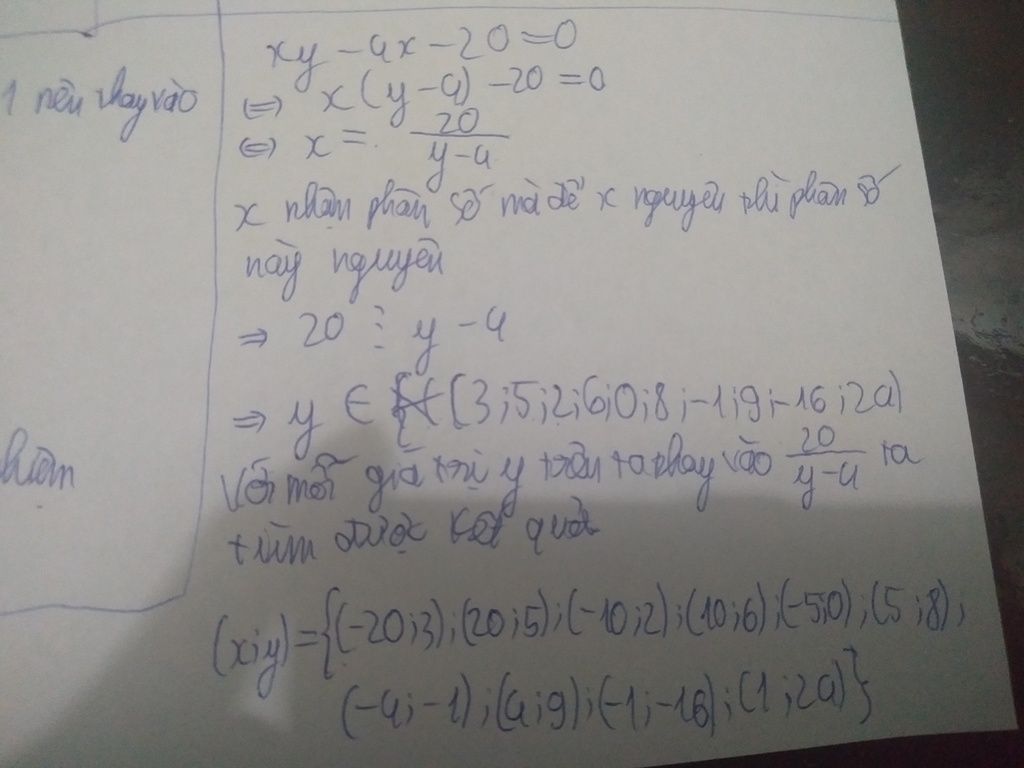 1 nên thay vào
xy - 4x - 20 = 0
⇔ x(y - 4) - 20 = 0
⇔ x = 20/(y - 4)
x nhận phân số mà để x nguyên thì phân số
này nguyên
⇒ 20 ⋮ y - 4
⇒ y ∈ {3;5;2;6;0;8;-1;9;-16;24}
Với mỗi giá trị y trên ta thay vào 20/(y - 4) ta
tìm được kết quả
(x;y)={(-20;3);(20;5);(-10;2);(10;6);(-5;0);(5;8);
(-4;-1);(4;9);(-1;-16);(1;24)}